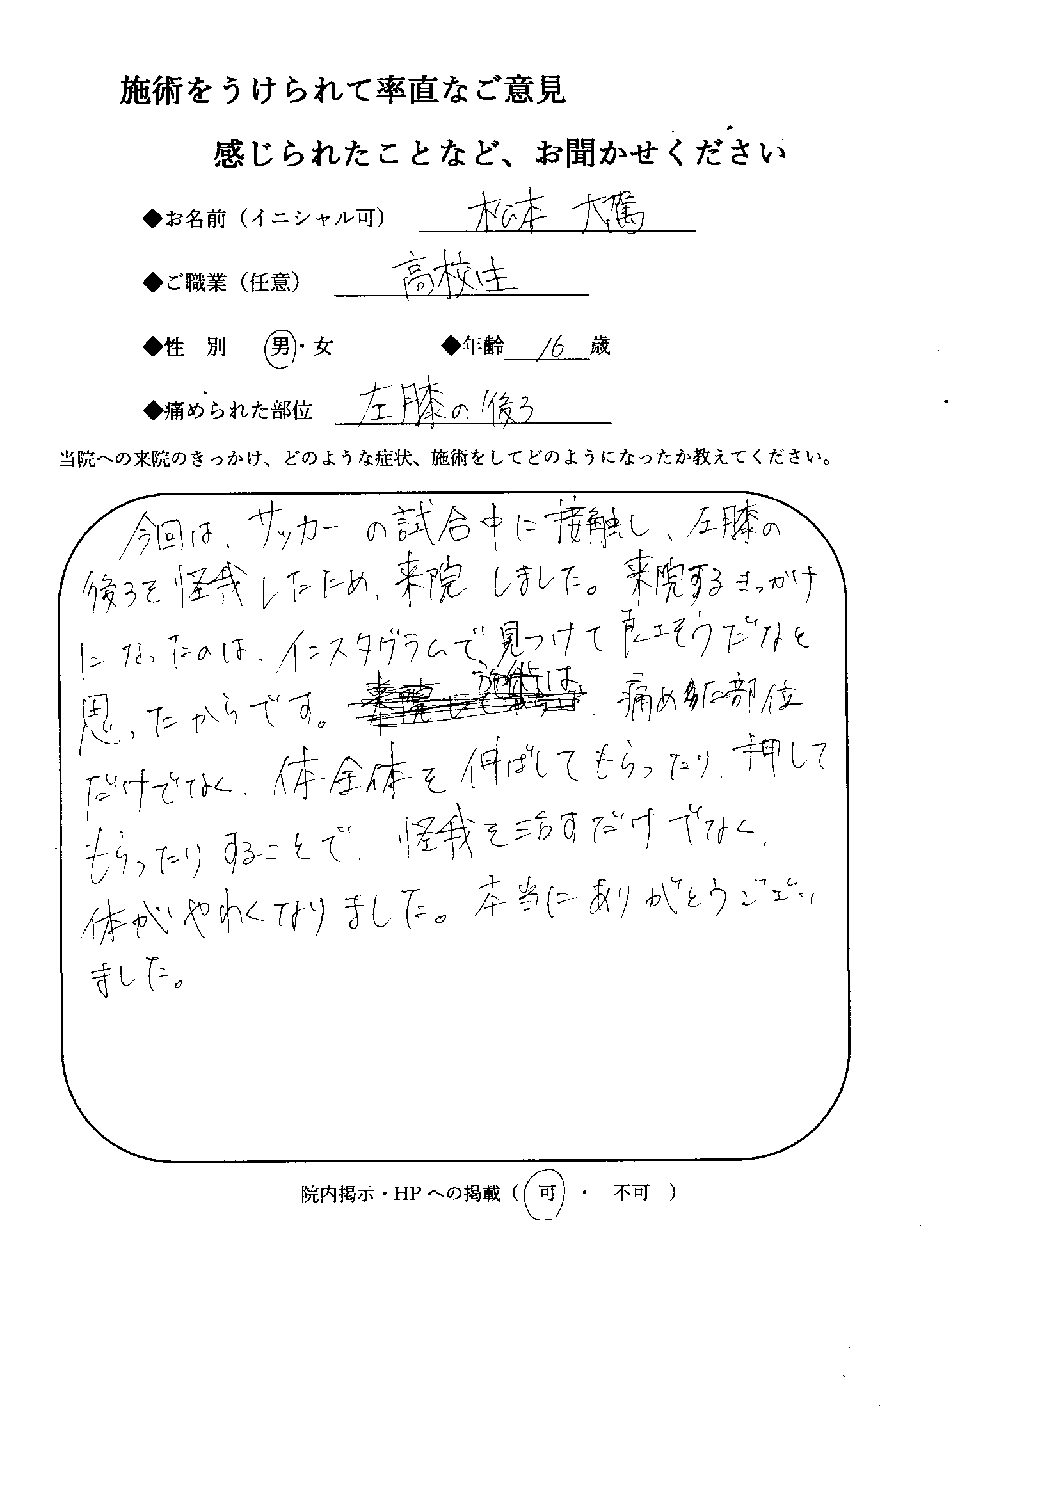 施術をうけられて率直なご意見
感じられたことなど、お聞かせください
◆お名前（イニシャル可） 松本 大篤
◆ご職業（任意） 高校生
◆性 別 男・女 ◆年齢 16 歳
◆痛められた部位 左膝の後ろ
当院への来院のきっかけ、どのような症状、施術をしてどのようになったか教えてください。
今回は、サッカーの試合中に接触し、左膝の
後ろを怪我したため、来院しました。来院するきっかけ
になったのは、インスタグラムで見つけて良さそうだなと
思ったからです。施術は、痛めた部位
だけでなく、体全体を伸ばしてもらったり、押して
もらったりすることで、怪我を治すだけでなく、
体がやわくなりました。本当にありがとうござい
ました。
院内掲示・HPへの掲載（ 可 ・ 不可 ）